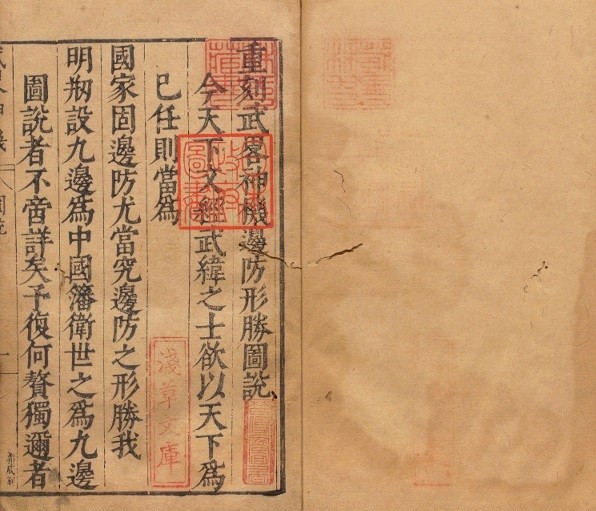 重刻武畧神機邊防形勝圖說
今天下文經武緯之士欲以天下爲
已任則當爲
國家固邊防尤當究邊防之形勝我
明剏設九邊爲中國藩衛世之爲九邊
圖說者不啻詳矣予復何贅獨邇者
淺草文庫
圖說